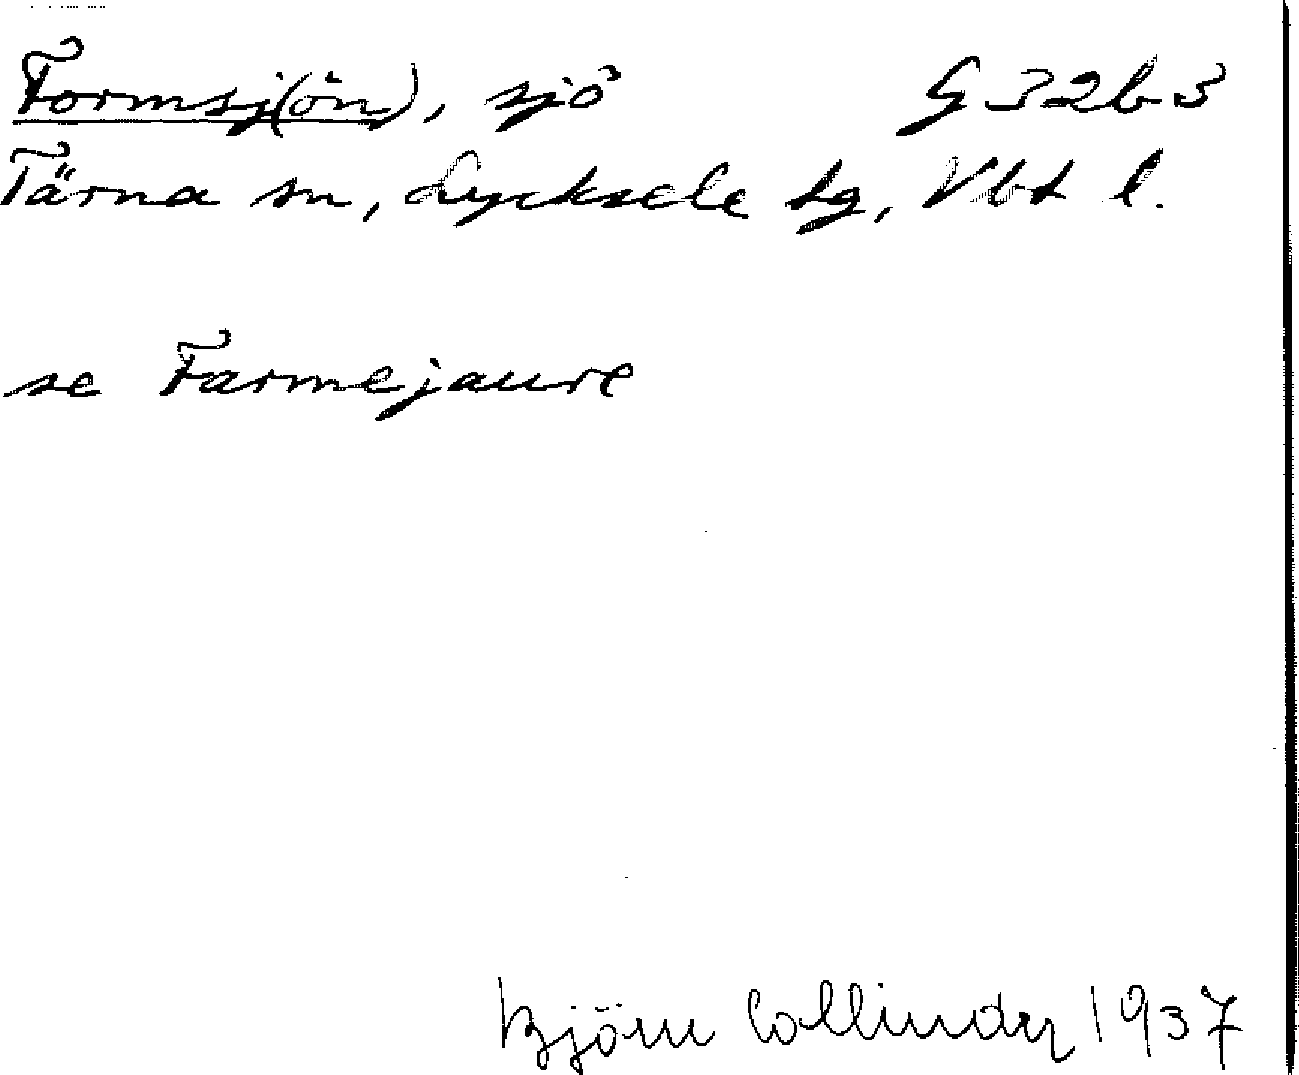 Formsj(ön), sjö G 32 b 3
Tärna sn, Lycksele lg, Vbt l.
se Farmejaure
Björn Collinder 1937